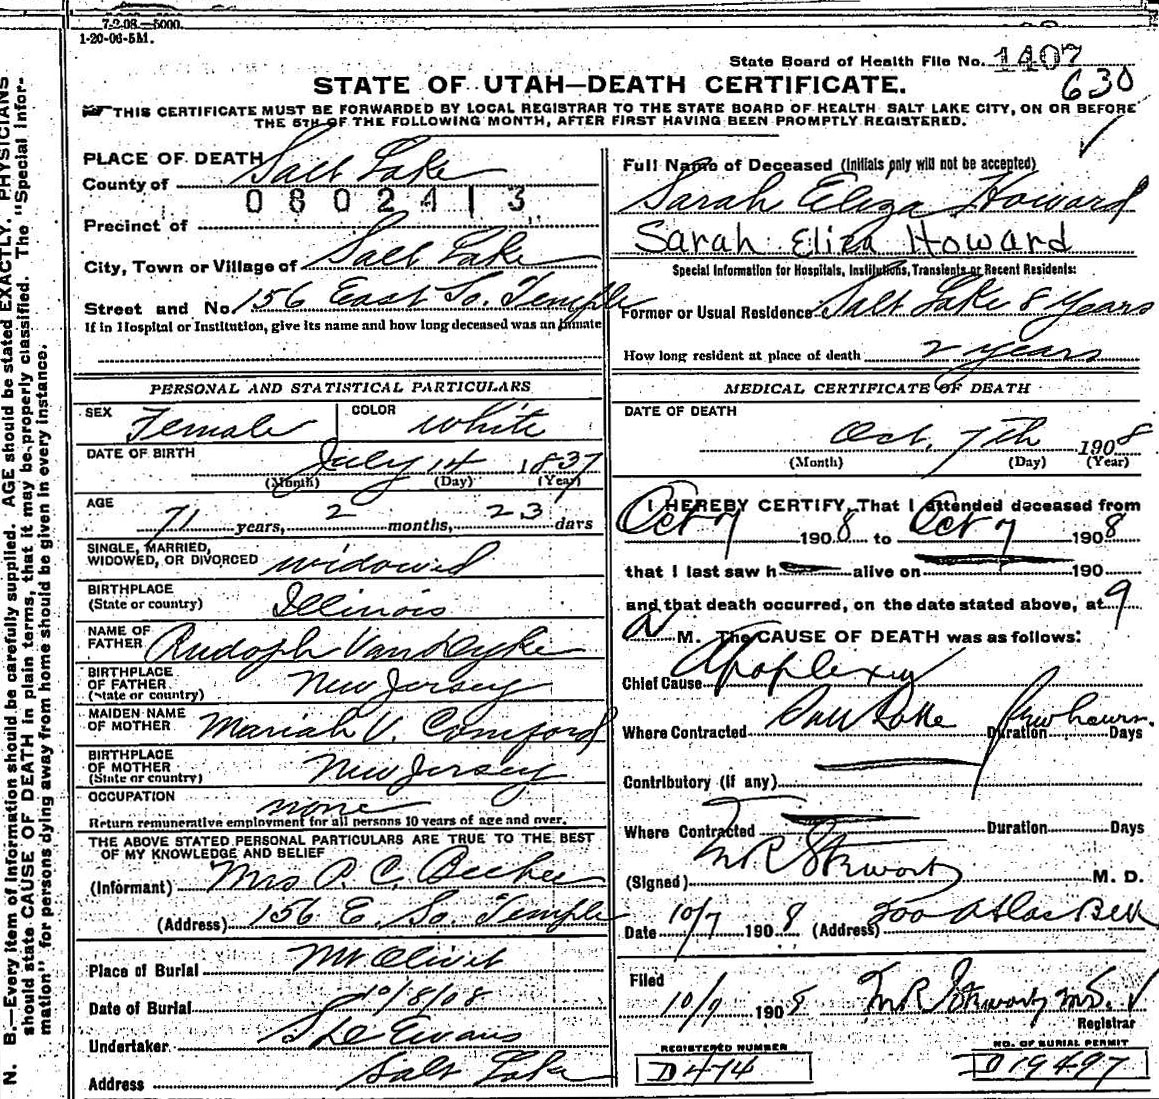 7-2-08.—5000.
1-20-06-5M.
State Board of Health File No. 1407
630
STATE OF UTAH—DEATH CERTIFICATE.
THIS CERTIFICATE MUST BE FORWARDED BY LOCAL REGISTRAR TO THE STATE BOARD OF HEALTH SALT LAKE CITY, ON OR BEFORE
THE 5TH OF THE FOLLOWING MONTH, AFTER FIRST HAVING BEEN PROMPTLY REGISTERED.
PLACE OF DEATH
County of Salt Lake
0802413
Precinct of
City, Town or Village of Salt Lake
Street and No. 156 East So. Temple
If in Hospital or Institution, give its name and how long deceased was an inmate
PERSONAL AND STATISTICAL PARTICULARS
SEX Female COLOR White
DATE OF BIRTH July 14 1837
(Month) (Day) (Year)
AGE 71 years, 2 months, 23 days
SINGLE, MARRIED,
WIDOWED, OR DIVORCED widowed
BIRTHPLACE
(State or country) Illinois
NAME OF
FATHER Rudolph VanDyke
BIRTHPLACE
OF FATHER
(State or country) New Jersey
MAIDEN NAME
OF MOTHER Mariah V. Comford
BIRTHPLACE
OF MOTHER
(State or country) New Jersey
OCCUPATION none
Return remunerative employment for all persons 10 years of age and over.
THE ABOVE STATED PERSONAL PARTICULARS ARE TRUE TO THE BEST
OF MY KNOWLEDGE AND BELIEF
(Informant) Mrs P. C.
(Address) 156 E. So. Temple
Place of Burial Mt Olivet
Date of Burial 10/8/08
Undertaker Evans
Address Salt Lake
Full Name of Deceased (Initials only will not be accepted)
Sarah Eliza Howard
Sarah Eliza Howard
Special Information for Hospitals, Institutions, Transients or Recent Residents:
Former or Usual Residence Salt Lake 8 Years
How long resident at place of death 2 years
MEDICAL CERTIFICATE OF DEATH
DATE OF DEATH
Oct. 7th 1908
(Month) (Day) (Year)
I HEREBY CERTIFY, That I attended deceased from
Oct 7 1908 to Oct 7 1908
that I last saw h alive on 190
and that death occurred, on the date stated above, at 9
a M. The CAUSE OF DEATH was as follows:
Chief Cause Apoplexy
Where Contracted Salt Lake Duration few hours. Days
Contributory (if any)
Where Contracted Duration Days
(Signed) M R Stewart M. D.
Date 10/7 1908 (Address) Atlas Blk
Filed
10/9 1908 M R Stewart M.D.
Registrar
REGISTERED NUMBER
D 474
NO. OF BURIAL PERMIT
D 19497
N. B.—Every item of information should be carefully supplied. AGE should be stated EXACTLY. PHYSICIANS
should state CAUSE OF DEATH in plain terms, that it may be properly classified. The "Special Infor-
mation" for persons dying away from home should be given in every instance.